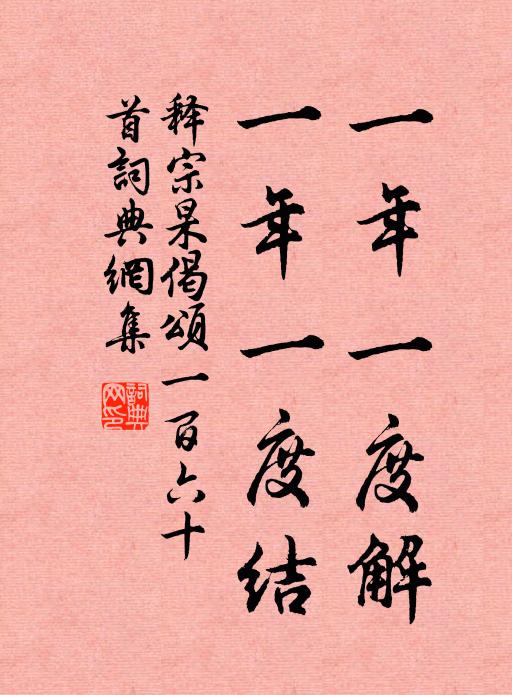 一年一度解
一年一度结
释宗杲偈頌一百六十
首詞典網集
詞典网印